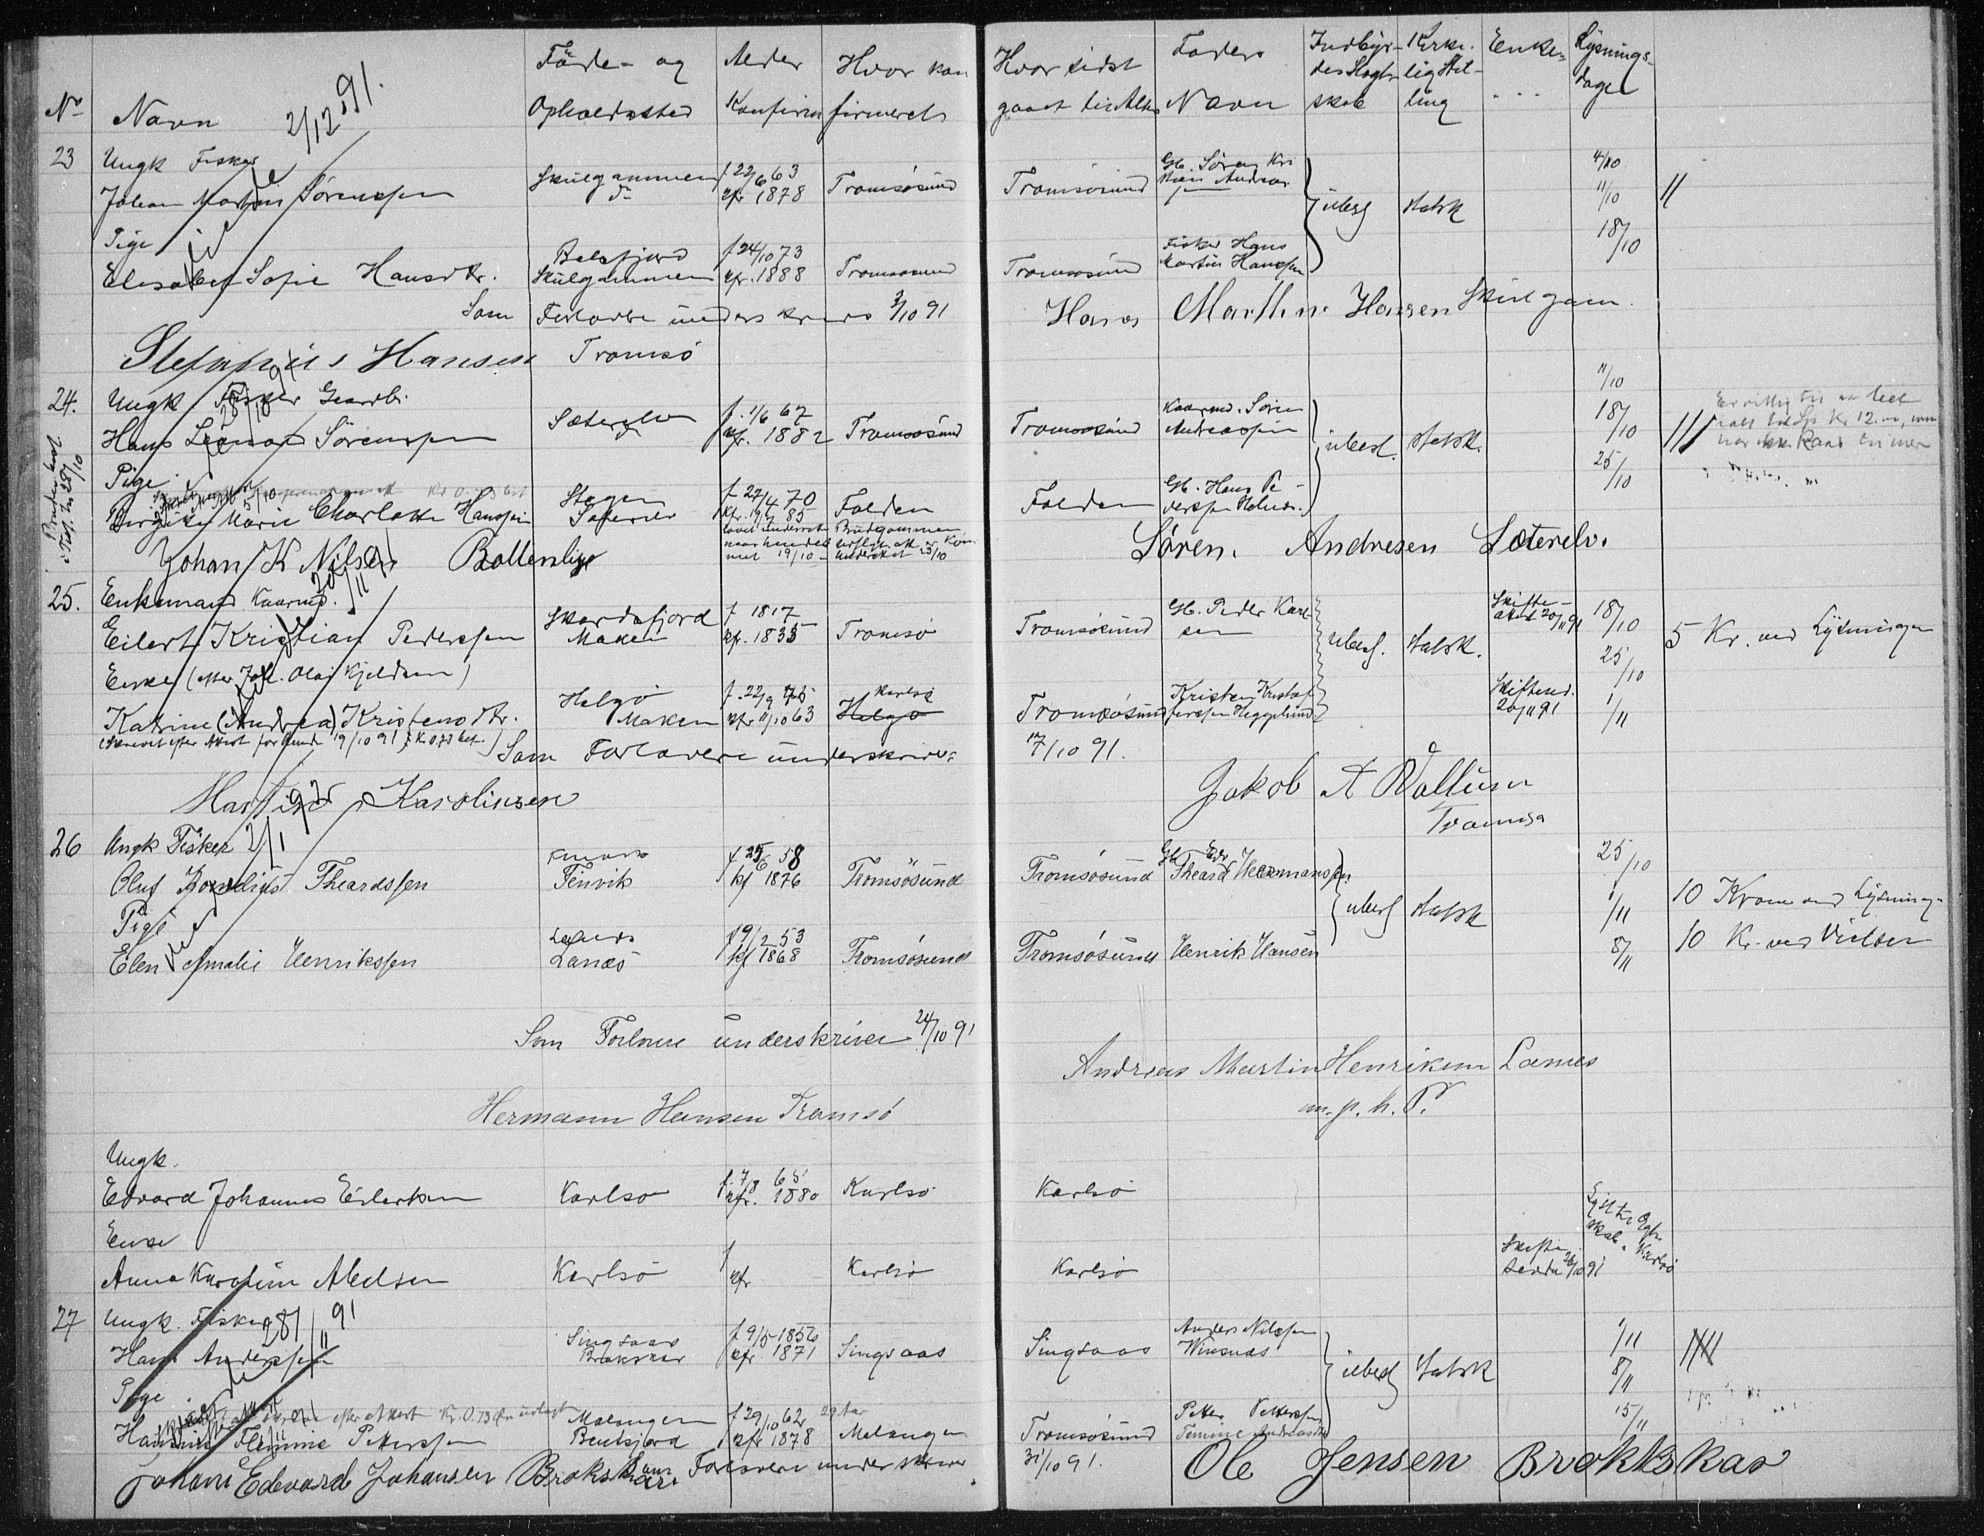 No Navn 2/12 91. Føde- og Opholdssted Alder Konfirm Hvor kon firmeret
Hvor sidst gaaet til Alters Faders Navn Indbyr- des Slægt- skab Kirke- lig Stil- ling Enke- Lysnings- dage
23 Ungk Fisker
Johan Martin Sørenssen Skulgammen do f 22/6 63 kfr 1878 Tromsøsund
Tromsøsund Gb. Søren Kri Andreas ubesl statsk 4/10 11/10 18/10
Pige
Elisabet Sofie Hansdtr. Balsfjord Skulgammen f 24/10 73 kfr. 1888 Tromsøsund
Tromsøsund Fisker Hans Martin Hanssen
Som Forlovere underskrives 3/10 91
Hans Marthin Hansen Skulgam.
Stefanus Hansen Tromsø
24. Ungk. Fisker Gaardbr.
Hans Leonard Sørenssen Sæterelv f. 1/6 67 kfr. 1882 Tromsøsund
Tromsøsund Kaarmd. Søren Andreassen ubesl. statsk. 11/10 18/10 25/10
Pige
Birgitte Marie Charlotte Hanssen Stegen Sæterelv f 27/4 70 kfr. 19/7 85 Folden
Folden Gb. Hans Pe- dersen
Johan K Nilsen Ballenlie 19/10 23/10
Søren. Andresen Sæterelv.
25. Enkemand Kaarmd. 20/11 91
Eilert Kristian Pederssen Skardsfjord Maken f 1817 kfr. 1835 Tromsø
Tromsøsund Gb. Peder Karl sen ubesl. statsk. Skifte- 20/11 91 18/10 25/10 1/11 5 Kr. ved Lysningen
Enke (efter Joh. Olai Kjeldsen)
Katrine (Andrea) Kristensdtr. Helgø Maken f. 22/9 kfr 11/10 63 Karlsø Helgø
Tromsøsund Kristen Kristof fersen Skiftend. 20/11 91
Som Forlovere underskrives
17/10 91.
Martin Karolinsen
Jakob A Valturn
Tromsø
26 Ungk Fisker
Oluf Kornelius Theardssen Finvik f 25/6 58 kf 1876 Tromsøsund
Tromsøsund Gb Theard Hermanssen ubesl statsk 25/10 1/11 8/11 10 Kroner ved Lysning-
Pige
Elen Amalie Henrikssen Lanæs f 19/2 53 kf 1868 Tromsøsund
Tromsøsund Henrik Hansen 10 Kr. ved Vielsen
Som Forlovere underskriver 24/10 91
Andreas Martin Henriksen Lanæs
m. p. h. P.
Hermann Hansen Tromsø
Ungk.
Edvard Johannes Eilertsen Karlsø f. 7/8 65 kfr. 1880 Karlsø
Karlsø
Enke
Anna Karoline Abelsen Karlsø f kfr Karlsø
Karlsø Skifte 26/10 91 Karlsø
27 Ungk. Fisker 28/11 91
Hans Anderssen Singsaas Brokskar f 9/5 1856 kfr. 1871 Singsaas
Singsaas Anders Nilssen Winsnes ubesl statsk 1/11 8/11 15/11
Pige.
Flemine Peterssen Malangen Bentsjord f 29/10 62 kfr 1878 Malangen
Tromsøsund Petter Petterssen
Johan Edevard Johansen Brokskar Som Forlovere underskriver
31/10 91.
Ole Jensen Brokkskar